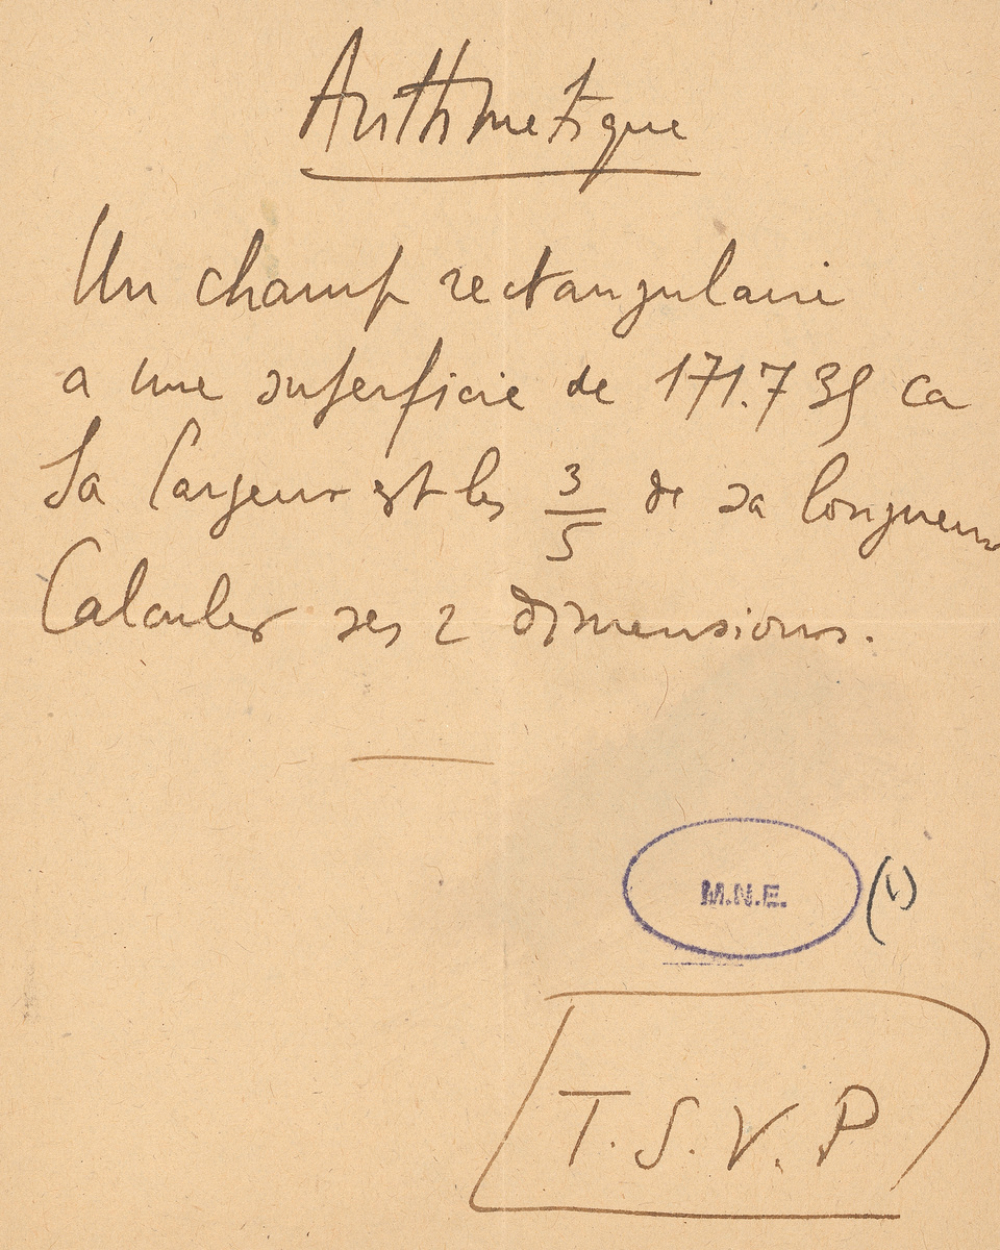 Arithmetique
Un champ rectangulaire
a une superficie de 171.735 ca
Sa largeur est les 3/5 de sa longueur
Calculer ses 2 dimensions.
M.N.E. (1)
T.S.V.P